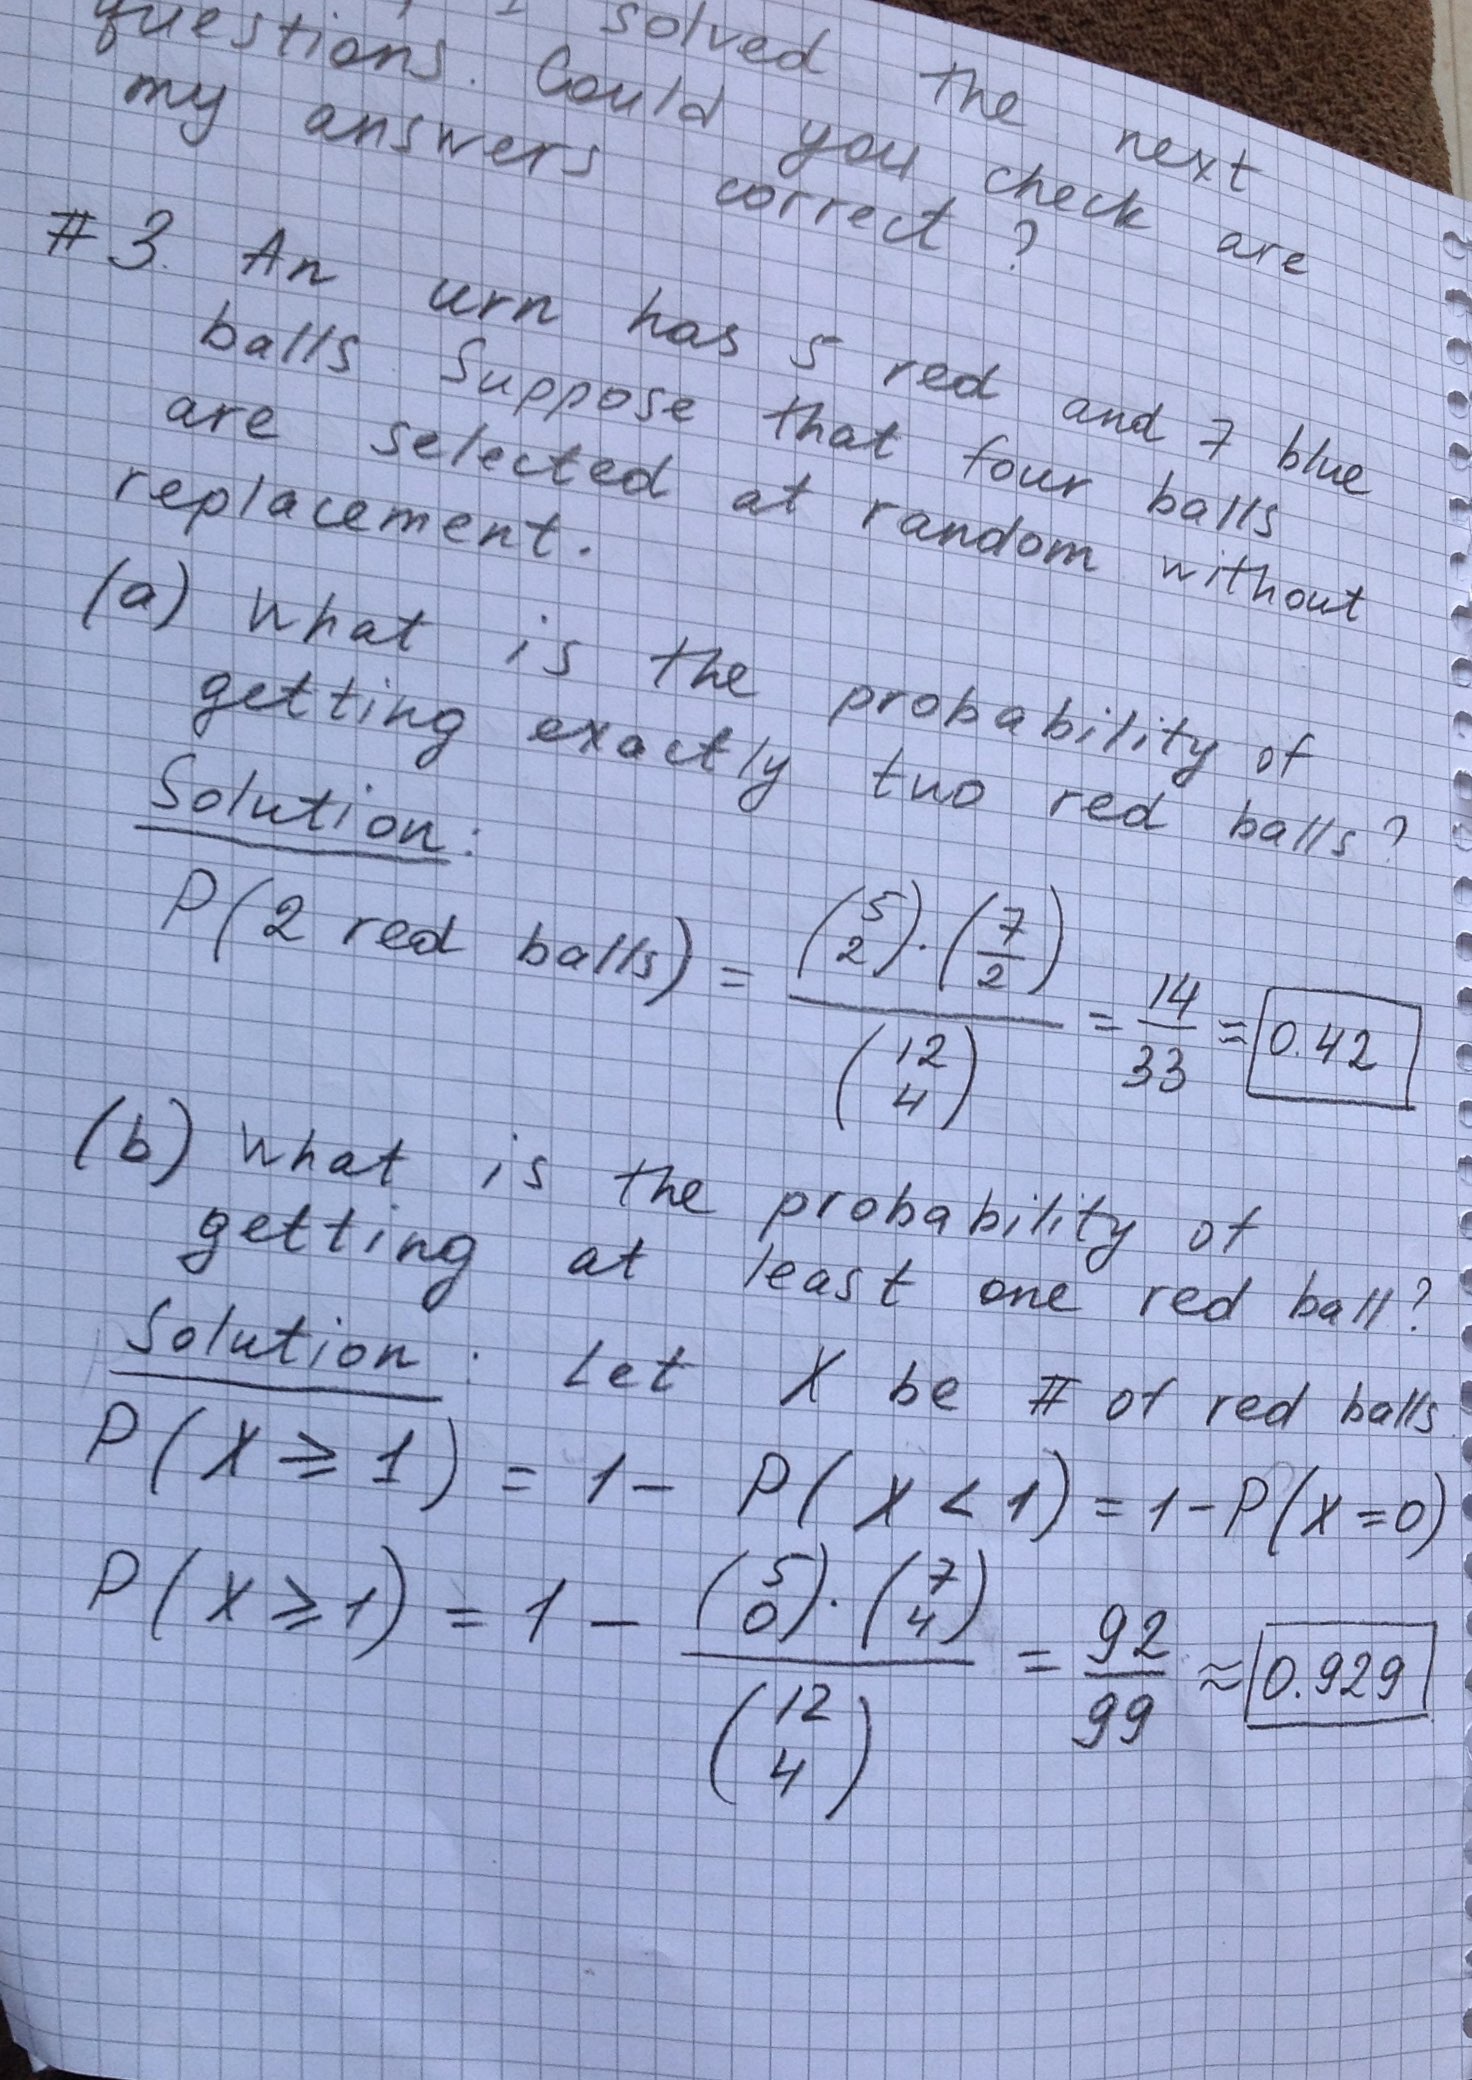 I solved the next
questions. Could you check are
my answers correct?
#3. An urn has 5 red and 7 blue
balls. Suppose that four balls
are selected at random without
replacement.
(a) What is the probability of
getting exactly two red balls?
Solution:
P(2 red balls) = (5 2)·(7/2) / (12 4) = 14/33 ≈ 0.42
(b) What is the probability of
getting at least one red ball?
Solution: Let X be # of red balls.
P(X ⩾ 1) = 1 - P(X < 1) = 1 - P(X = 0)
P(X ⩾ 1) = 1 - (5 0)·(7 4) / (12 4) = 92/99 ≈ 0.929